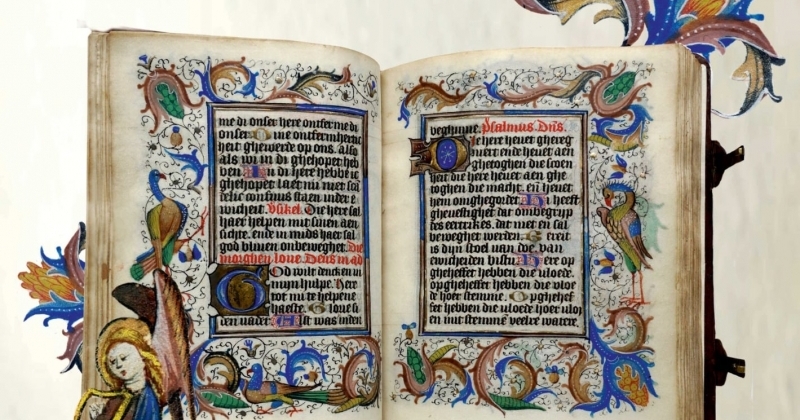 me di onser here ontferme di
onser. Dine ontfermhertic
heit ghewerde op ons. also
als wi in di ghehoept heb
ben In di here hebbe ic
ghehoept laet mi niet sca
confuus staen inder e
wicheit. Die here sal
haer helpen mit sinen aen
sichte. ende in mids haer sal
god bliuen onbeweghet. Die
morghen loue. Deus in ad
God wilt dencken in
mijn hulpe. Here
tot mi te helpene
haeste. Glorie si
den vader. Alst was inden
beghinne. Psalmus Dns.
Die here heuet ghereg
neert ende heuet aen
ghetoghen die scoen
heit die here heuet aen ghe
toghen die macht. en heuet
hem omghegordet Hi heeft
ghevestighet dat ombegrijp
des eertrikes. dat niet en sal
beweghet werden. Gereit
is dijn stoel van doe. van
ewicheiden bistu Here op
gheheffet hebben die vloede.
opgheheffet hebben die vloe
de hoer stemme. Opghehef
fet hebben die vloede hoer vloy
en mit stemme veelre watere.